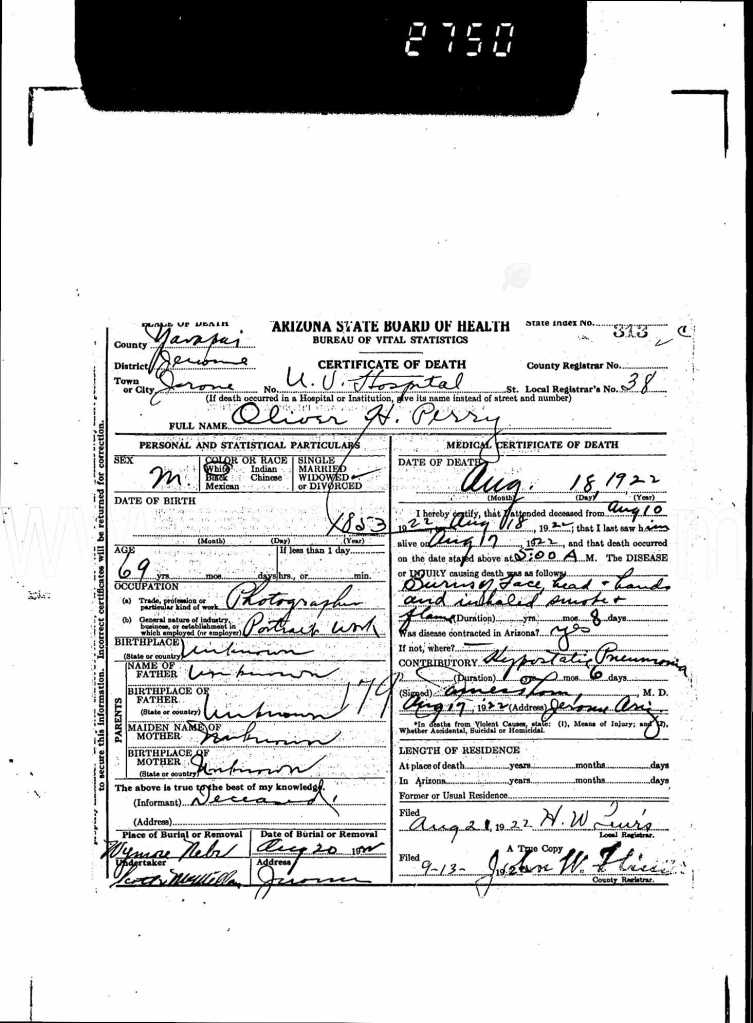 2750
PLACE OF DEATH
ARIZONA STATE BOARD OF HEALTH
State Index No. 313
County Yavapai
BUREAU OF VITAL STATISTICS
District Jerome
CERTIFICATE OF DEATH
County Registrar No.
Town or City Jerome No. U. V. Hospital St. Local Registrar's No. 38
(If death occurred in a Hospital or Institution, give its name instead of street and number)
FULL NAME Oliver H. Perry
PERSONAL AND STATISTICAL PARTICULARS
SEX M.
COLOR OR RACE
White Indian
Black Chinese
Mexican
SINGLE
MARRIED
WIDOWED
or DIVORCED
DATE OF BIRTH
1853
(Month) (Day) (Year)
AGE
If less than 1 day
69 yrs. mos. days hrs., or min.
OCCUPATION
(a) Trade, profession or particular kind of work Photographer
(b) General nature of industry, business, or establishment in which employed (or employer) Portrait Work
BIRTHPLACE
(State or country) Unknown
NAME OF FATHER Unknown
BIRTHPLACE OF FATHER
(State or country) Unknown
179
PARENTS
MAIDEN NAME OF MOTHER Unknown
BIRTHPLACE OF MOTHER
(State or country) Unknown
The above is true to the best of my knowledge.
(Informant) Deceased.
(Address)
Place of Burial or Removal
Wymore Nebr
Date of Burial or Removal
Aug 20 19
Undertaker
Scott
Address
Jerome
MEDICAL CERTIFICATE OF DEATH
DATE OF DEATH
Aug. 18 1922
(Month) (Day) (Year)
I hereby certify, that I attended deceased from Aug 10
1922 Aug 18, 1922, that I last saw him
alive on Aug 17 1922, and that death occurred
on the date stated above at 5:00 A M. The DISEASE
or INJURY causing death was as follows
Burns of face, head + hands
and inhaled smoke +
flame (Duration) yrs. mos. 8 days
Was disease contracted in Arizona? yes
If not, where?
CONTRIBUTORY Hypostatic Pneumonia
(Duration) mos. 6 days
(Signed) M. D.
Aug 17, 1922 (Address) Jerome Ariz
*In deaths from Violent Causes, state: (1), Means of Injury; and (2), Whether Accidental, Suicidal or Homicidal.
LENGTH OF RESIDENCE
At place of death years months days
In Arizona years months days
Former or Usual Residence
Filed
Aug 21, 1922 H. W.
Local Registrar.
A True Copy
Filed
9-13- 192 John W.
County Registrar.
to secure this information. Incorrect certificates will be returned for correction.